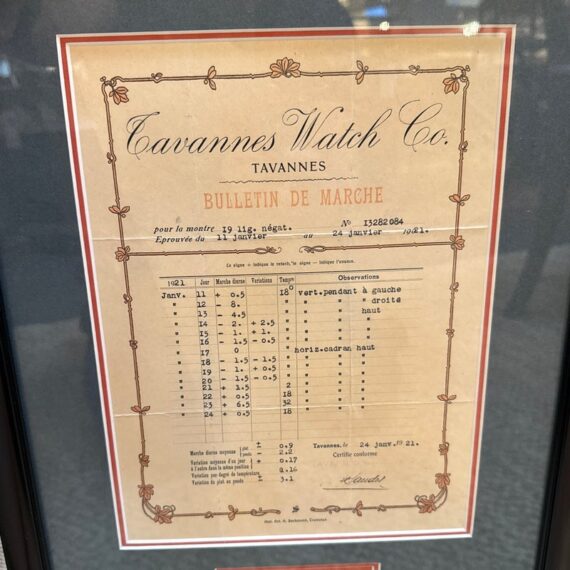 Tavannes Watch Co.
TAVANNES
BULLETIN DE MARCHE
pour la montre 19 lig. négat. No 13282084
Eprouvée du 11 janvier au 24 janvier 1921.
Le signe + indique le retard, le signe — indique l'avance.
1921 Jour Marche diurne Variations Temp Observations
Janv. 11 + 0.5 18° vert. pendant à gauche
" 12 - 8. " " " " droite
" 13 - 4.5 " " " haut
" 14 - 2. + 2.5 " " " "
" 15 - 1. + 1. " " " "
" 16 - 1.5 - 0.5 " " " "
" 17 0 " horiz. cadran haut
" 18 - 1.5 - 1.5 " " " "
" 19 - 1. + 0.5 " " " "
" 20 - 1.5 - 0.5 " " " "
" 21 + 1.5 2 " " "
" 22 + 0.5 18 " " "
" 23 + 6.5 32 " " "
" 24 + 0.5 18 " " "
Marche diurne moyenne plat ± 0.9
pendu - 2.2
Variation moyenne d'un jour à l'autre dans la même position ± 0.17
Variation par degré de température 0.16
Variation du plat au pendu ± 3.1
Tavannes, le 24 janv. 1921.
Certifié conforme